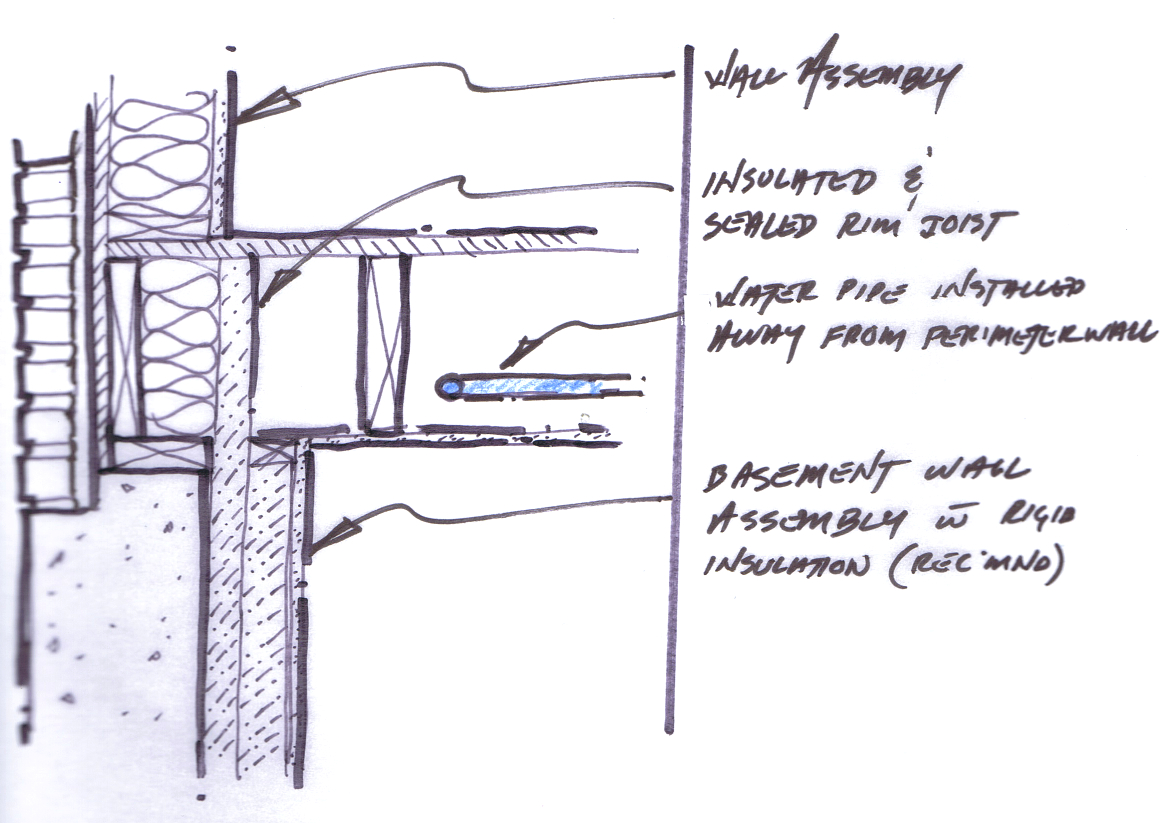 WALL ASSEMBLY
INSULATED &
SEALED RIM JOIST
WATER PIPE INSTALLED
AWAY FROM PERIMETER WALL
BASEMENT WALL
ASSEMBLY w̄ RIGID
INSULATION (REC'MND)